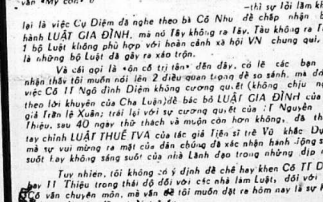 văn "My con"
—thì sự lỗi lầm
lại là việc Cụ Diệm đã nghe theo bà Cố Nhu để chấp nhận b
hành LUẬT GIA ĐÌNH, mà nó Tây không ra Tây. Tàu không ra T
1 bộ Luật không phù hợp với hoàn cảnh xã hội VN chung qui,
là những bộ Luật đã gây ra xáo trộn.
Và cái gọi là "ôn cố tri tân" đến đây, có lẽ các bạn
nhận thấy tôi muốn nói lên 2 điều quan trọng để so sánh, mà đó
việc Cố TT Ngô đình Diệm không cương quyết (không chịu n
theo lời khuyên của Cha Luận) để bác bỏ LUẬT GIA ĐÌNH của
giả Trần lệ Xuân; trái lại với sự cương quyết của TT Nguyễn
Thiệu, sau 40 ngày thử thách và muộn còn hơn không, đã th
tay chỉnh LUẬT THUẾ TVA của tác giả Tiến sĩ trẻ Vũ khắc Dụ
mà sự vui mừng ra mặt của dân chúng đã xác nhận hành động s
suốt hay không sáng suốt của nhà Lãnh đạo trong những dịp
Tuy nhiên, tôi không có ý định để chê hay khen Cố TT D
hay TT Thiệu trong thái độ đối với các nhà làm Luật, đối với
Cố văn chuyên môn, mà vấn đề tôi muốn đặt ra hôm nay là sự